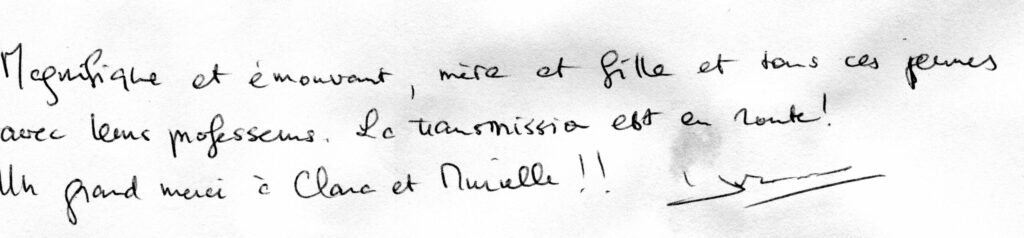 Magnifique et émouvant, mère et fille et tous ces jeunes
avec leurs professeurs. La transmission est en route !
Un grand merci à Clara et Murielle !!